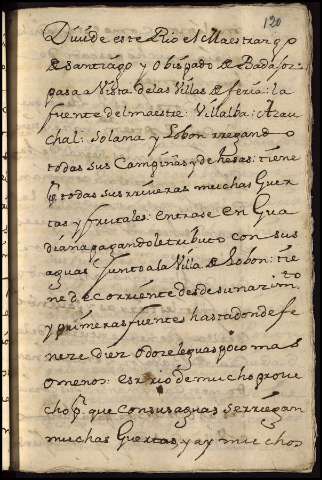 120
Diuide este Rio el Maestrazgo
de Santiago y obispado de Badajoz
pasa a Vista de las Villas de feria: la
fuente del maestre: Villalba: Azau
chal: Solana y Lobon rregando
todas sus Campiñas y dehesas: tiene
todas sus rriueras muchas Guer
tas y frutales: entrase en Gua
diana pagandole tributo con sus
aguas Junto a la Villa de Lobon: tie
ne de corriente desde su nazimto
y primeras fuentes hasta donde fe
neze diez o doze leguas poco mas
o menos: es rrio de mucho proue
cho pr que con sus aguas se rriegan
muchas Guertas, y ay muchos